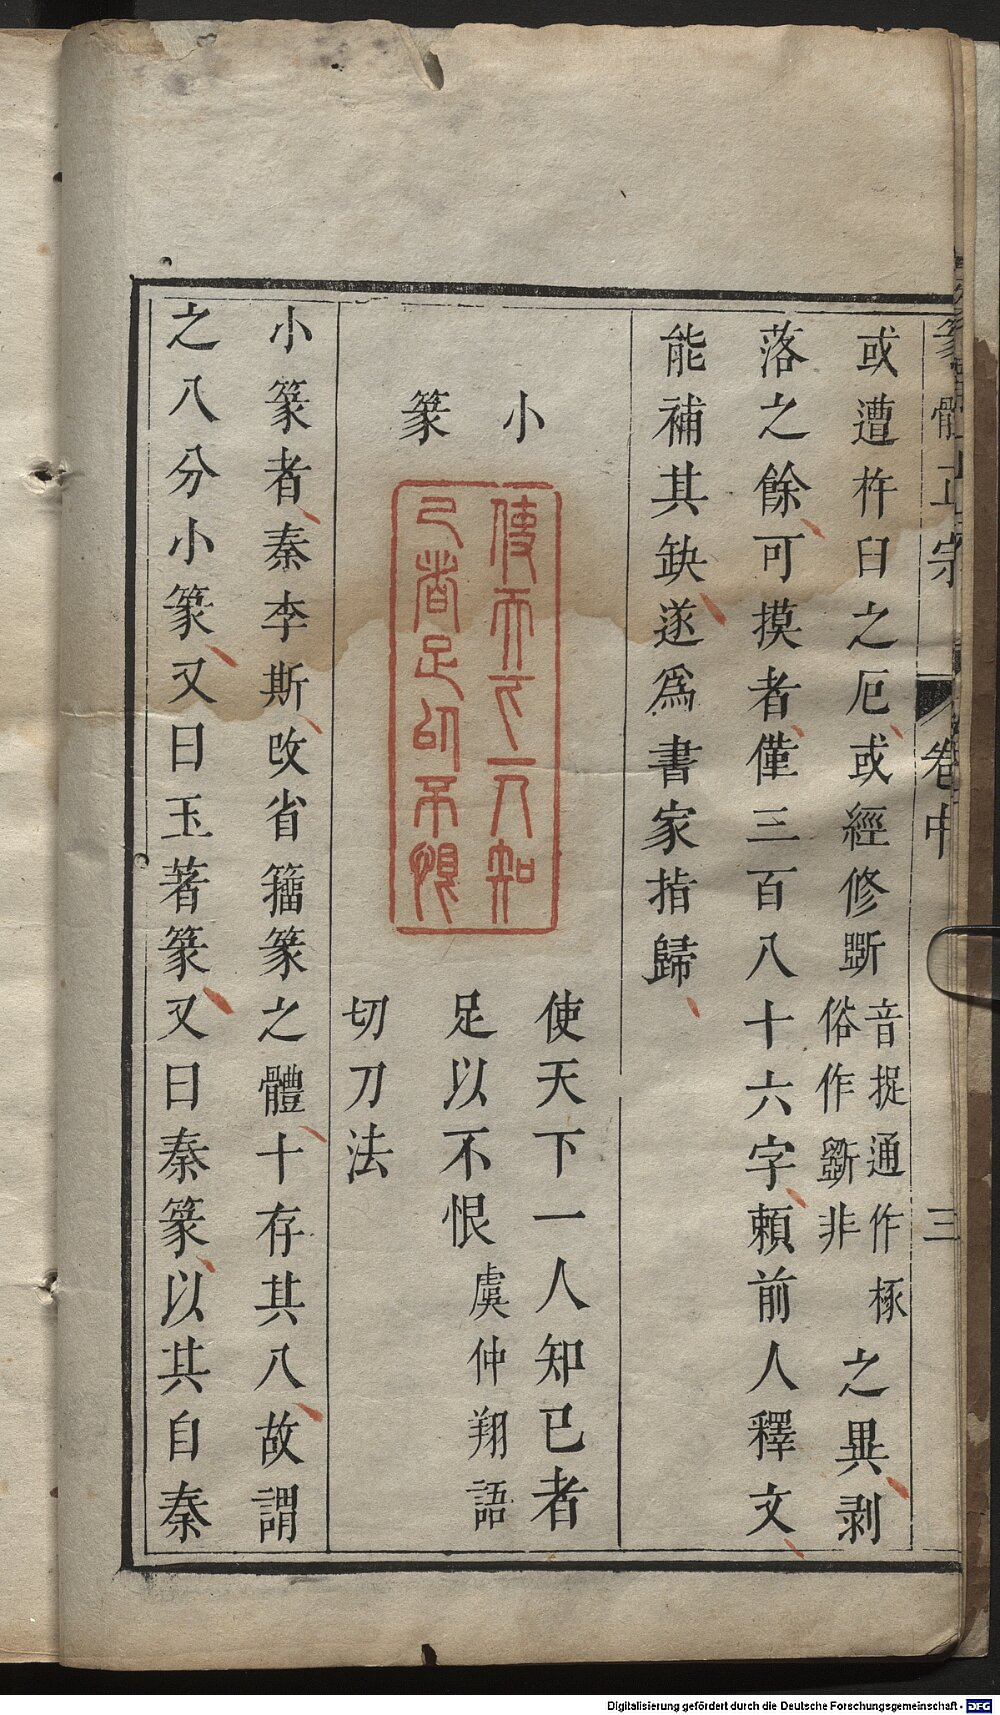 篆體正宗 卷中 三
或遭杵臼之厄或經修斲音捉通作椓俗作斵非之異剥
落之餘可摸者僅三百八十六字頼前人釋文
能補其缺遂爲書家指歸
小篆
使天下一人知
己者足以不恨
使天下一人知已者
足以不恨虞仲翔語
切刀法
小篆者秦李斯改省籀篆之體十存其八故謂
之八分小篆又曰玉著篆又曰秦篆以其自秦
Digitalisierung gefördert durch die Deutsche Forschungsgemeinschaft - DFG